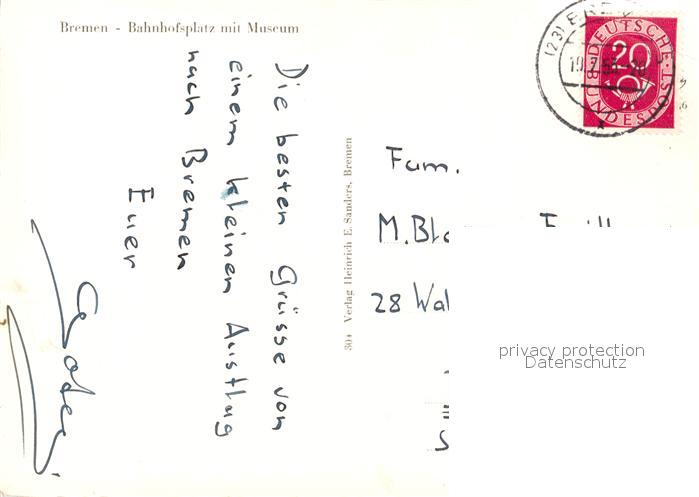 Bremen - Bahnhofsplatz mit Museum
Die besten Grüsse von
einem kleinen Ausflug
nach Bremen
Euer
304 Verlag Heinrich E. Sanders, Bremen
DEUTSCHE
20
BUNDESPOST
(23)
Fam.
M.
28
privacy protection
Datenschutz